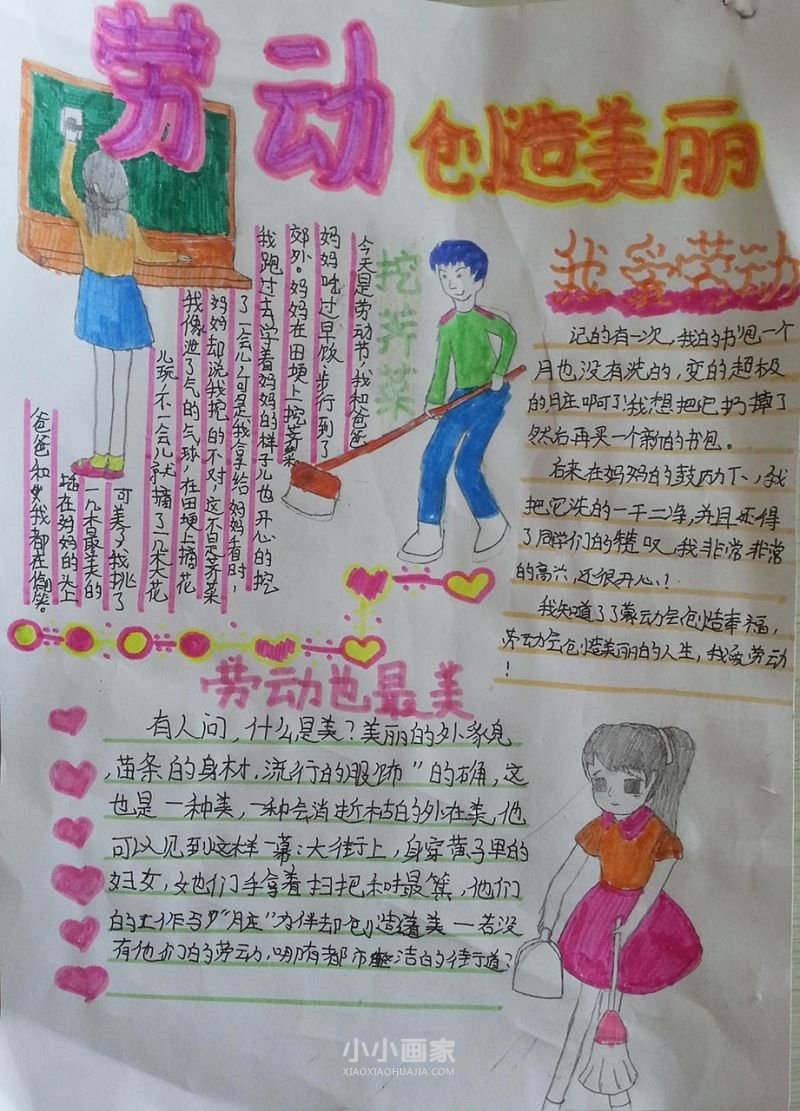 劳动
创造美丽
挖荠菜
今天是劳动节，我和爸爸
妈妈吃过早饭，步行到了
郊外。妈妈在田埂上挖荠菜
我跑过去学着妈妈的样子儿也开心的挖
了一会儿，可是我拿给妈妈看时，
妈妈却说我挖的不对，这不是荠菜
我像泄了气的气球，在田埂上摘花
儿玩，不一会儿就摘了一朵大花
可美了，我挑了
一朵最美的
插在妈妈的头上
爸爸和我都在偷笑。
我爱劳动
记的有一次，我的书包一个
月也没有洗的，变的超极
的月庄啊可了！我想把它扔掉了
然后再买一个新的书包。
后来在妈妈的鼓励下，我
把它洗的一干二净，并且还得
了同学们的赞叹，我非常非常
的高兴，还很开心！
我知道了了劳动会创造幸福，
劳动会创造美丽的人生，我爱劳动
！
劳动也最美
有人问，什么是美？美丽的外象皃
，苗条的身材，流行的服饰”的确，这
也是一种美，一种会消逝枯的外在美，他
可以见到这样一幕：大街上，身穿黄子里的
妇女，她们手拿着扫把和垃圾箕，他们
的工作与“月庄”为伴却创造着美一若没
有他们的劳动，哪有都市整洁的街道？
小小画家
XIAOXIAOHUAJIA.COM